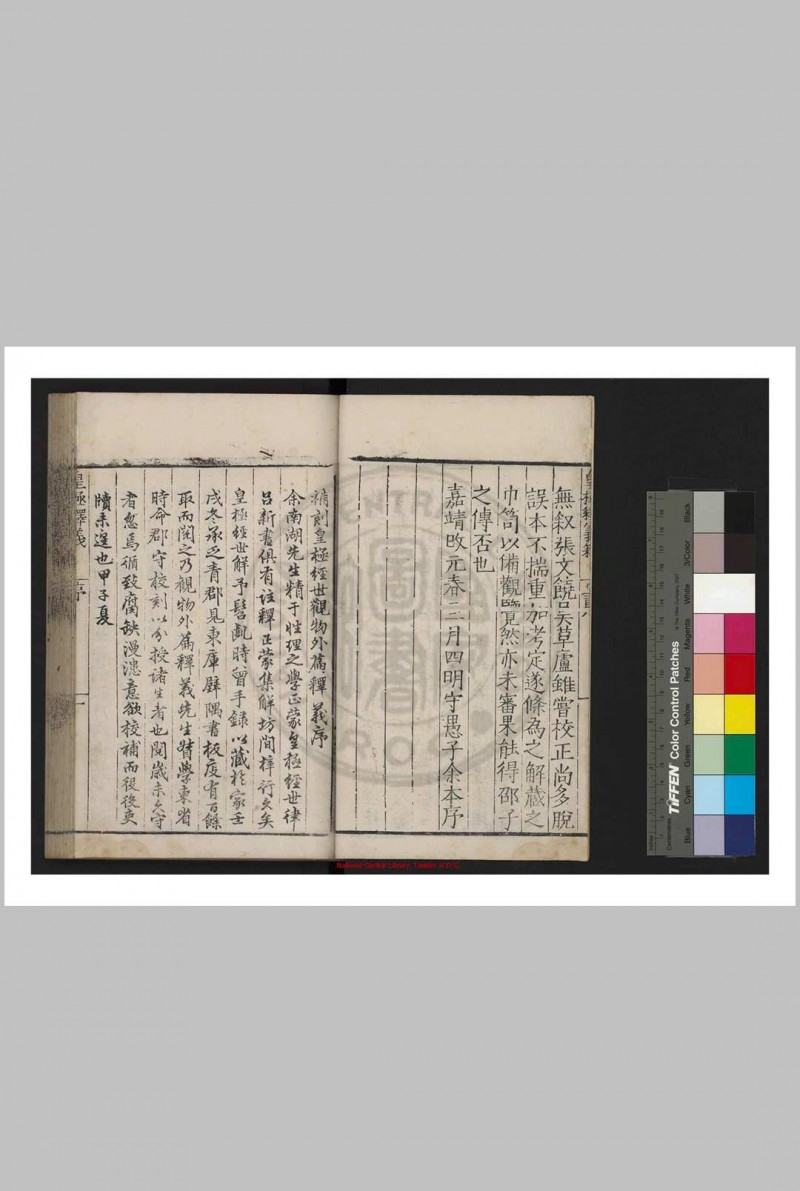 無叙張文饒吳草廬雖嘗校正尚多脫
誤本不揣重加考定遂條為之解藏之
巾笥以備觀覽竟然亦未審果能得邵子
之傳否也
嘉靖改元春二月四明守愚子余本序
補刻皇極經世觀物外篇釋義序
余南湖先生精于性理之學正蒙皇極經世律
呂新書俱有註釋正蒙集解坊間梓行久矣
皇極經世解予髫齔時曾手錄以藏於家壬
戌冬承乏青郡見東庫壁隅書板庋有百餘
取而閱之乃觀物外篇釋義先生督學東省
時命郡守校刻以分授諸生者也閱歲未久守
者忽焉循致腐缺漫漶意欲校補而役後吏
牘未遑也甲子夏
皇極釋義
序
一
National Central Library, Taiwan, R.O.C.
TIFFEN Color Control Patches
Blue
Cyan
Green
Yellow
Red
Magenta
White
3/Color
Black